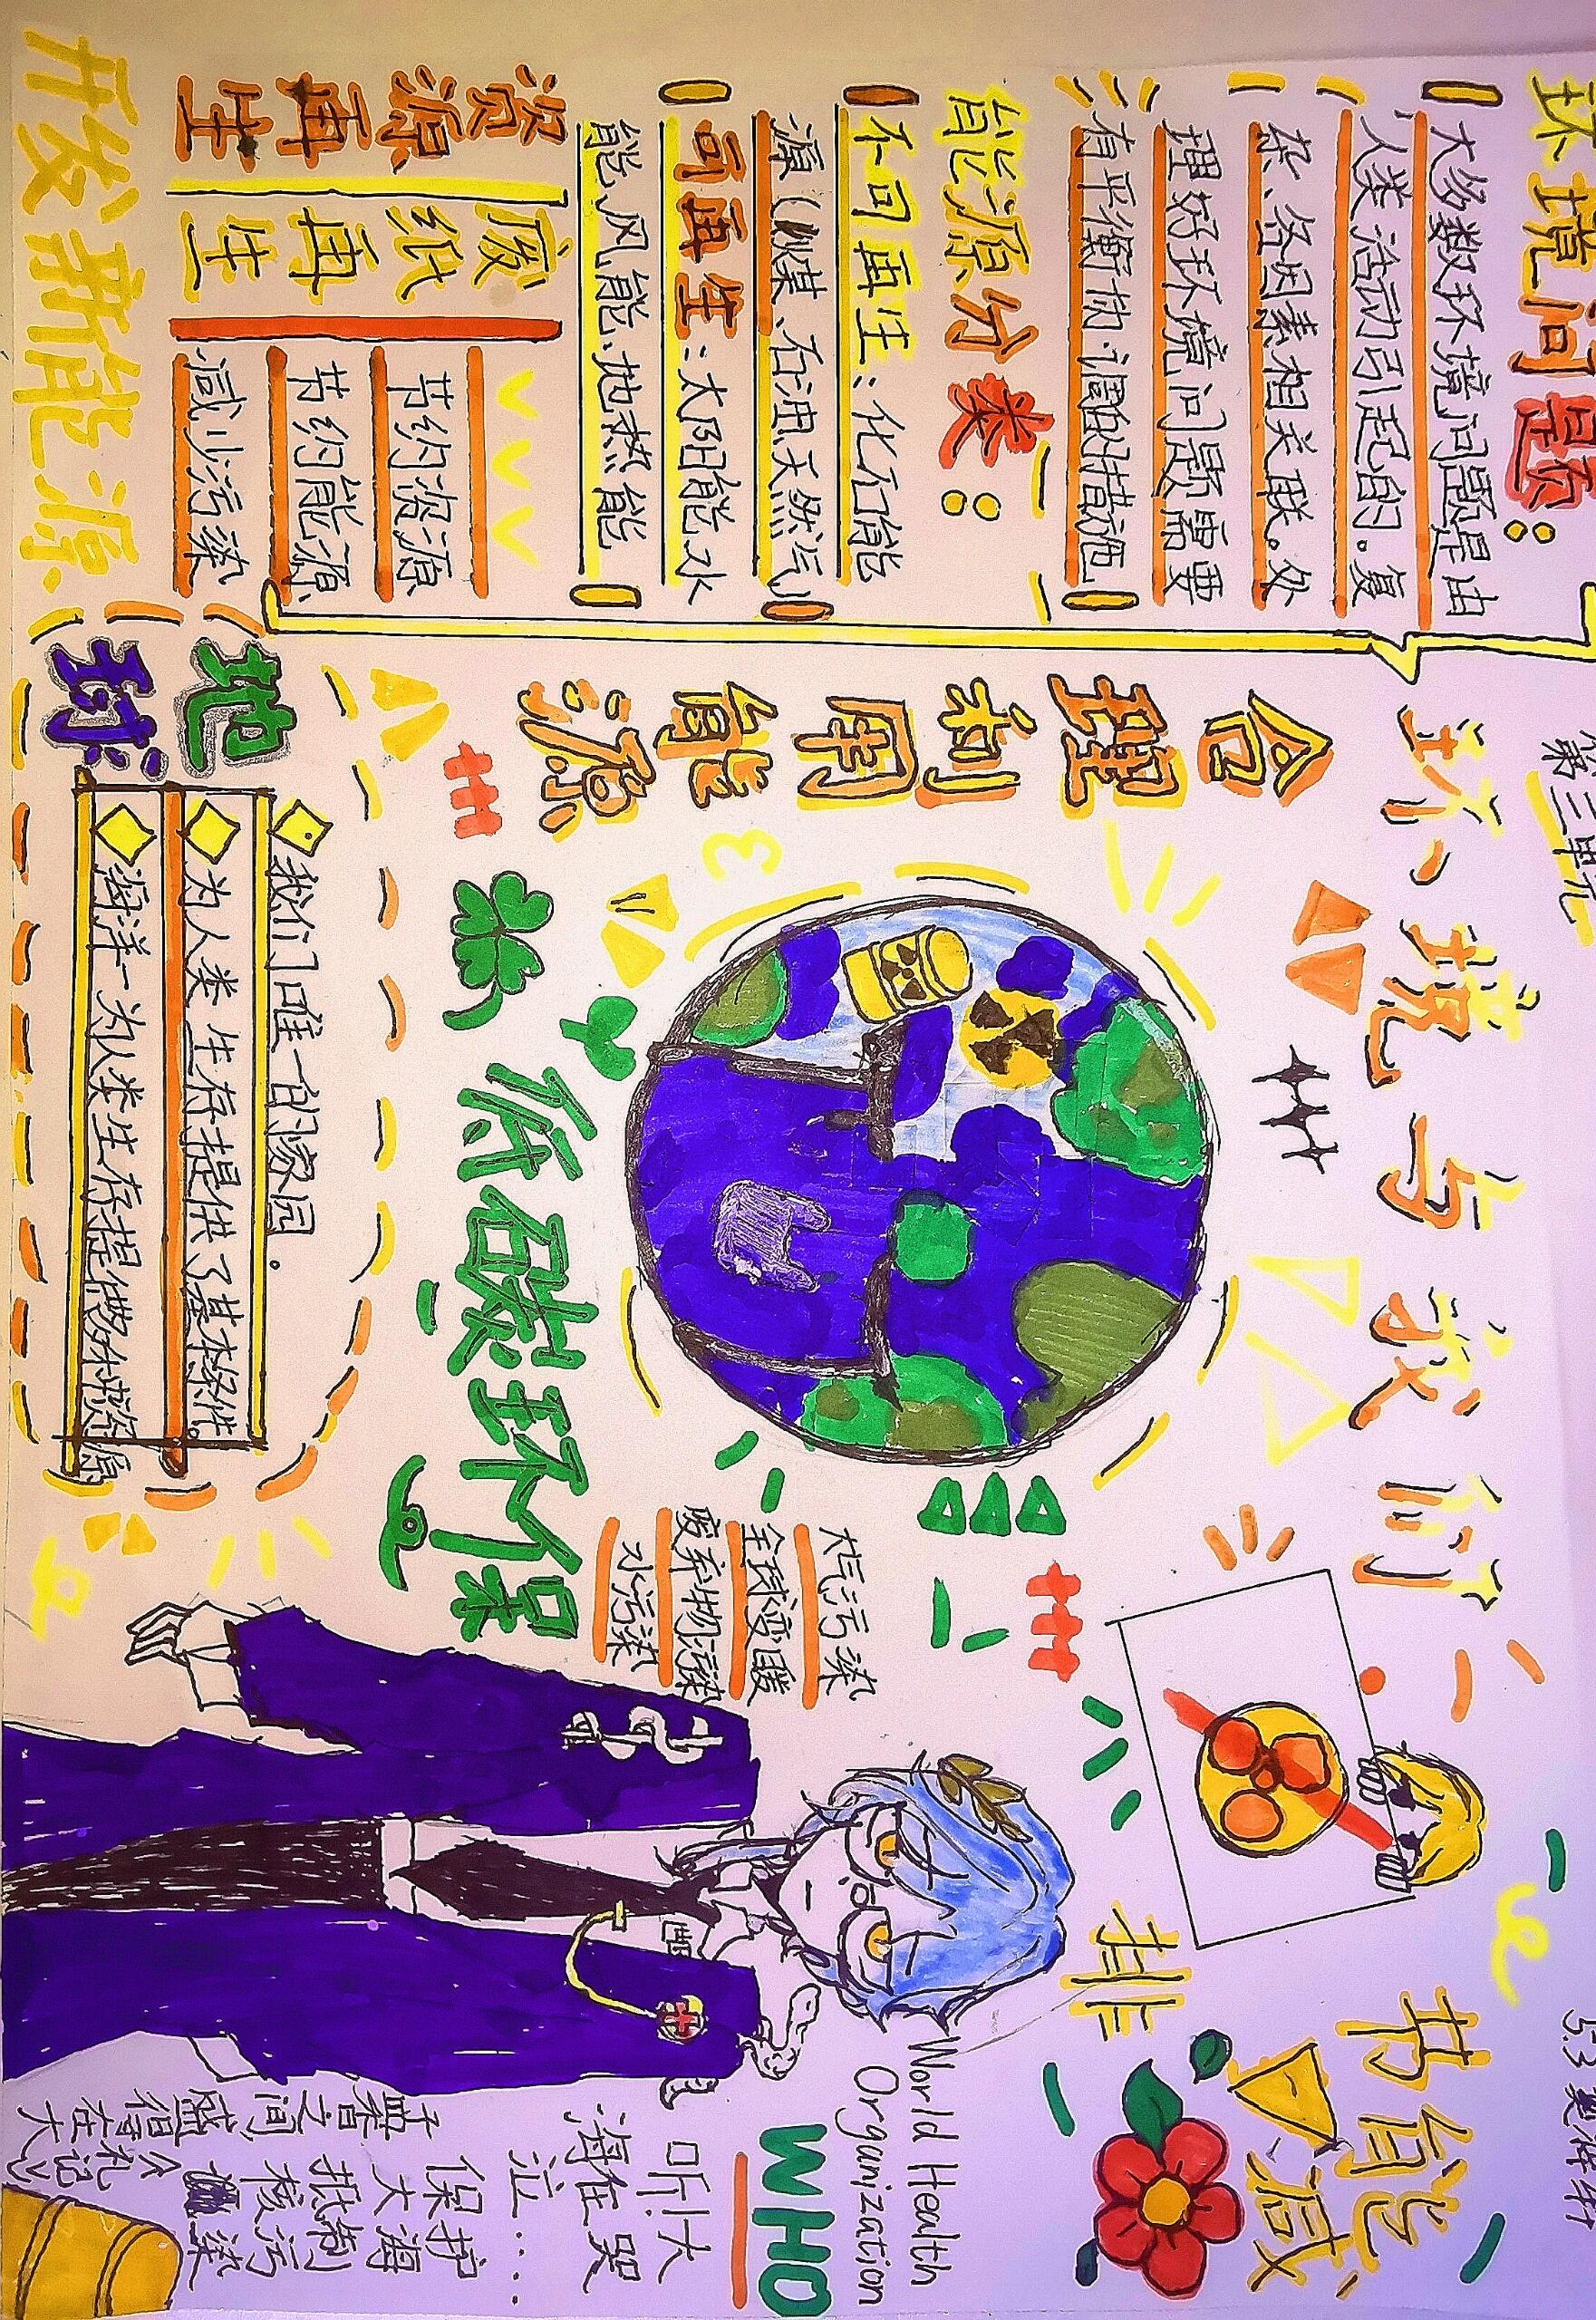 第三单元
环境与我们
合理利用能源
环境问题:
大多数环境问题是由
人类活动引起的.复
杂、各因素相关联。处
理好环境问题需要
有平衡协调的措施
能源分类:
不可再生:化石能
源(煤、石油、天然气)
可再生:太阳能、水
能、风能、地热能
资源再生
废纸再生
节约资源
节约能源
减少污染
开发新能源
地球:
我们唯一的家园.
为人类生存提供了基本条件.
海洋一为人类生存提供物种资源
低碳环保
大气污染
全球变暖
废弃物污染
水污染
节能减排
World Health
Organization
WHO
听!大
海在哭
泣....
保护
大海
抵制
核污
染